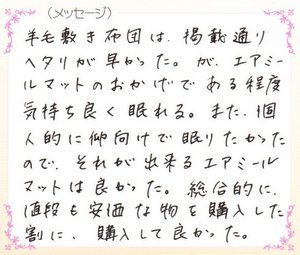 (メッセージ)
羊毛敷き布団は、掲載通り
ヘタリが早かった。が、エアミー
ルマットのおかげである程度
気持ち良く眠れる。また、個
人的に仰向けで眠りたかった
ので、それが出来るエアミール
マットは良かった。総合的に、
値段も安価な物を購入した
割に、購入して良かった。